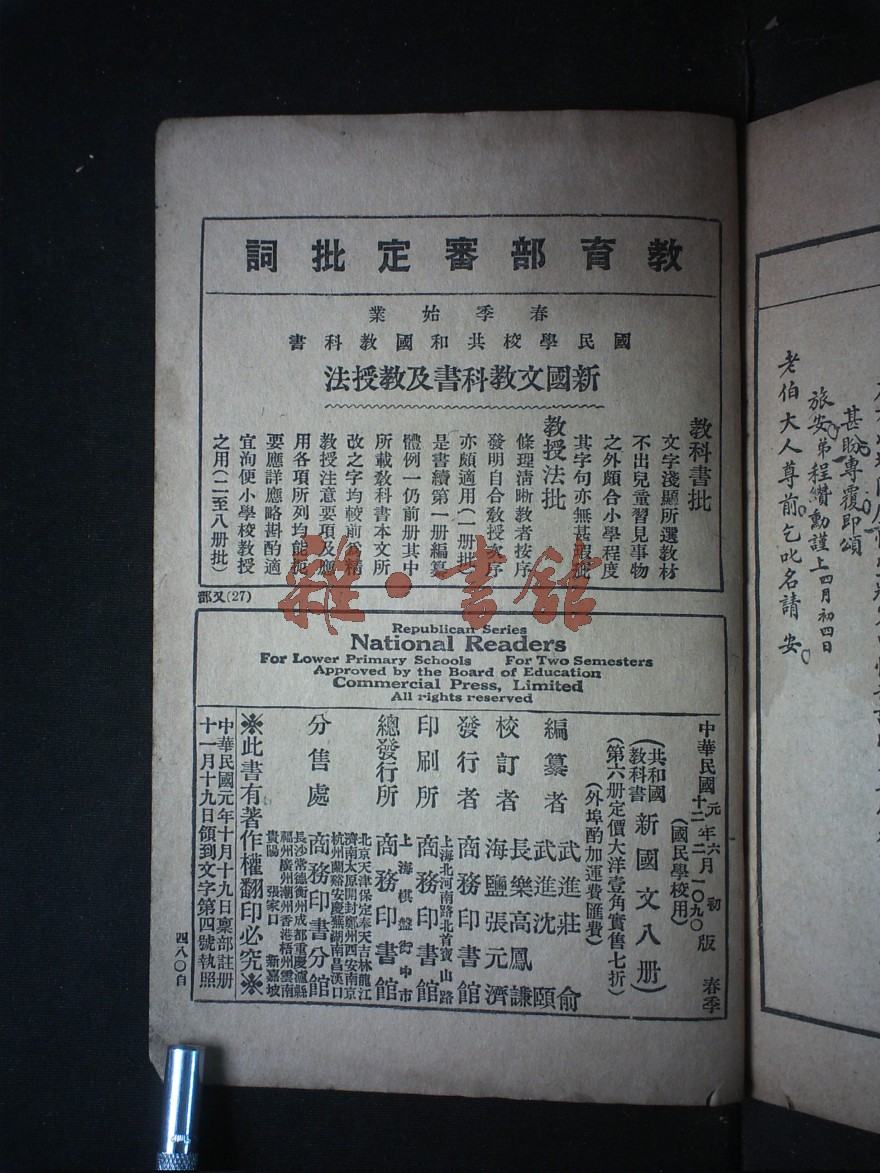 教育部審定批詞
春季始業
國民學校共和國教科書
新國文教科書及教授法
教科書批
文字淺顯所選教材
不出兒童習見事物
之外頗合小學程度
其字句亦無甚瑕疵
教授法批
條理清晰教者按序
發明自合教授次序
亦頗適用(一册批)
是書續第一册編纂
體例一仍前册其中
所載教科書本文所
改之字均較前爲精
教授注意要項及應
用各項所列均能扼
要應詳應略斟酌適
宜洵便小學校教授
之用(二至八册批)
(27)又部
Republican Series
National Readers
For Lower Primary Schools For Two Semesters
Approved by the Board of Education
Commercial Press, Limited
All rights reserved
中華民國元年六月初版 春季
十二年二月一〇九〇版
(國民學校用)
(共和國教科書 新國文八册)
(第六册定價大洋壹角實售七折)
(外埠酌加運費匯費)
編纂者 武進莊俞
武進沈頤
校訂者 長樂高鳳謙
海鹽張元濟
發行者 商務印書館
印刷所 上海北河南路北首寶山路
商務印書館
總發行所 上海棋盤街中市
商務印書館
分售處 北京天津保定奉天吉林龍江
濟南太原開封鄭州西安南京
杭州蘭谿安慶蕪湖南昌漢口
商務印書分館
長沙常德衡州成都重慶瀘縣
福州廣州潮州香港梧州雲南
貴陽 張家口 新嘉坡
※此書有著作權翻印必究※
中華民國元年十月十九日稟部註册
十一月十九日領到文字第四號執照
四八〇自
雜·書館
甚盼專覆即頌
旅安弟程纘勳謹上四月初四日
老伯大人尊前乞叱名請安